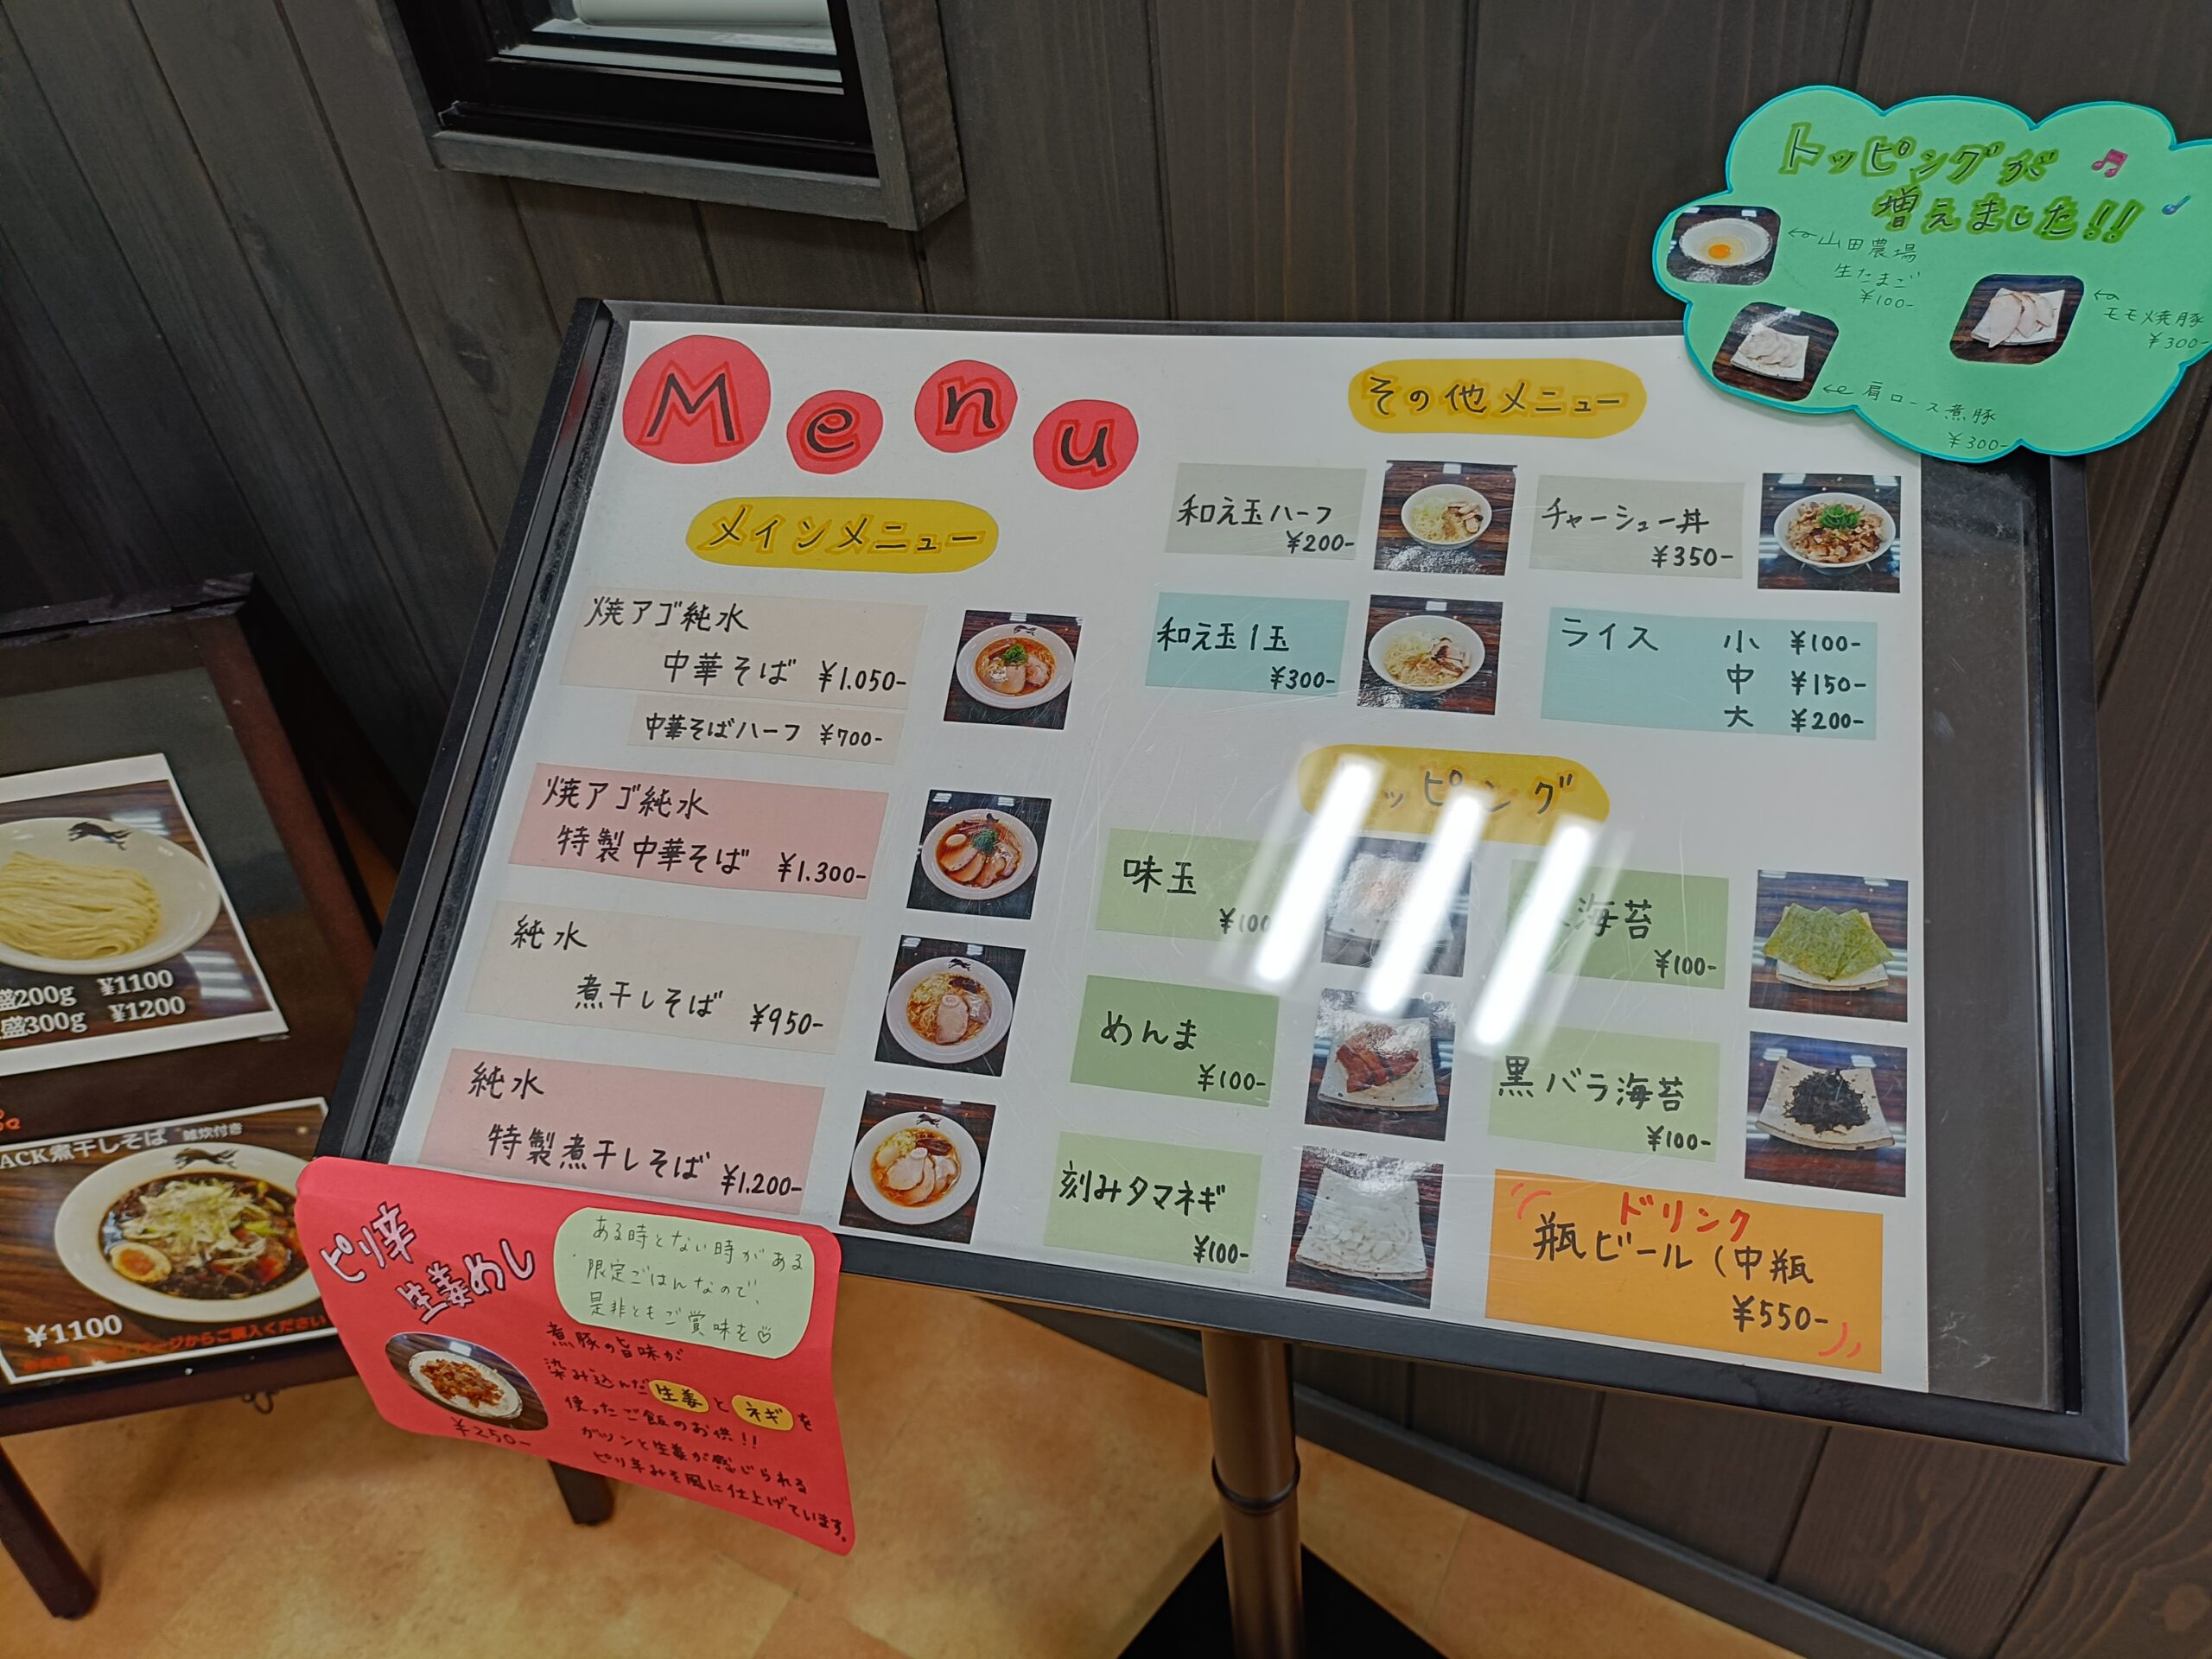 Menu
メインメニュー
焼アゴ純水
中華そば ¥1.050-
中華そばハーフ ¥700-
焼アゴ純水
特製中華そば ¥1.300-
純水
煮干しそば ¥950-
純水
特製煮干しそば ¥1.200-
その他メニュー
和え玉ハーフ
¥200-
チャーシュー丼
¥350-
和え玉1玉
¥300-
ライス 小 ¥100-
中 ¥150-
大 ¥200-
ッピング
味玉
¥100
海苔
¥100-
めんま
¥100-
黒バラ海苔
¥100-
刻みタマネギ
¥100-
ドリンク
瓶ビール(中瓶
¥550-
トッピングが
増えました!!
山田農場
生たまご
¥100-
モモ焼豚
¥300-
肩ロース煮豚
¥300-
ピリ辛
生姜めし
¥250-
ある時とない時がある
限定ごはんなので、
是非ともご賞味を♡
煮豚の旨味が
染み込んだ生姜とネギを
使ったご飯のお供!!
ガツンと生姜が感じられる
ピリ辛みそ風に仕上げています。
盛200g ¥1100
盛300g ¥1200
ACK煮干しそば 雑炊付き
¥1100
ページからご購入ください